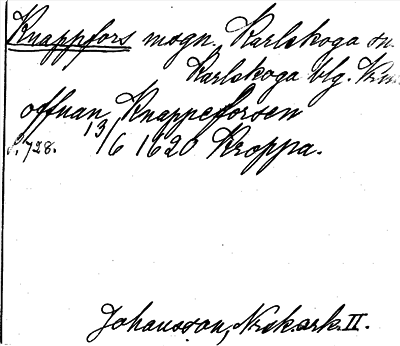 Knappfors mogn, Karlskoga sn.
Karlskoga blg. Krm.
offnan Knappeforsen
s. 728. 13/6 1620 Kroppa.
Johansson, Nsk. ark. II.